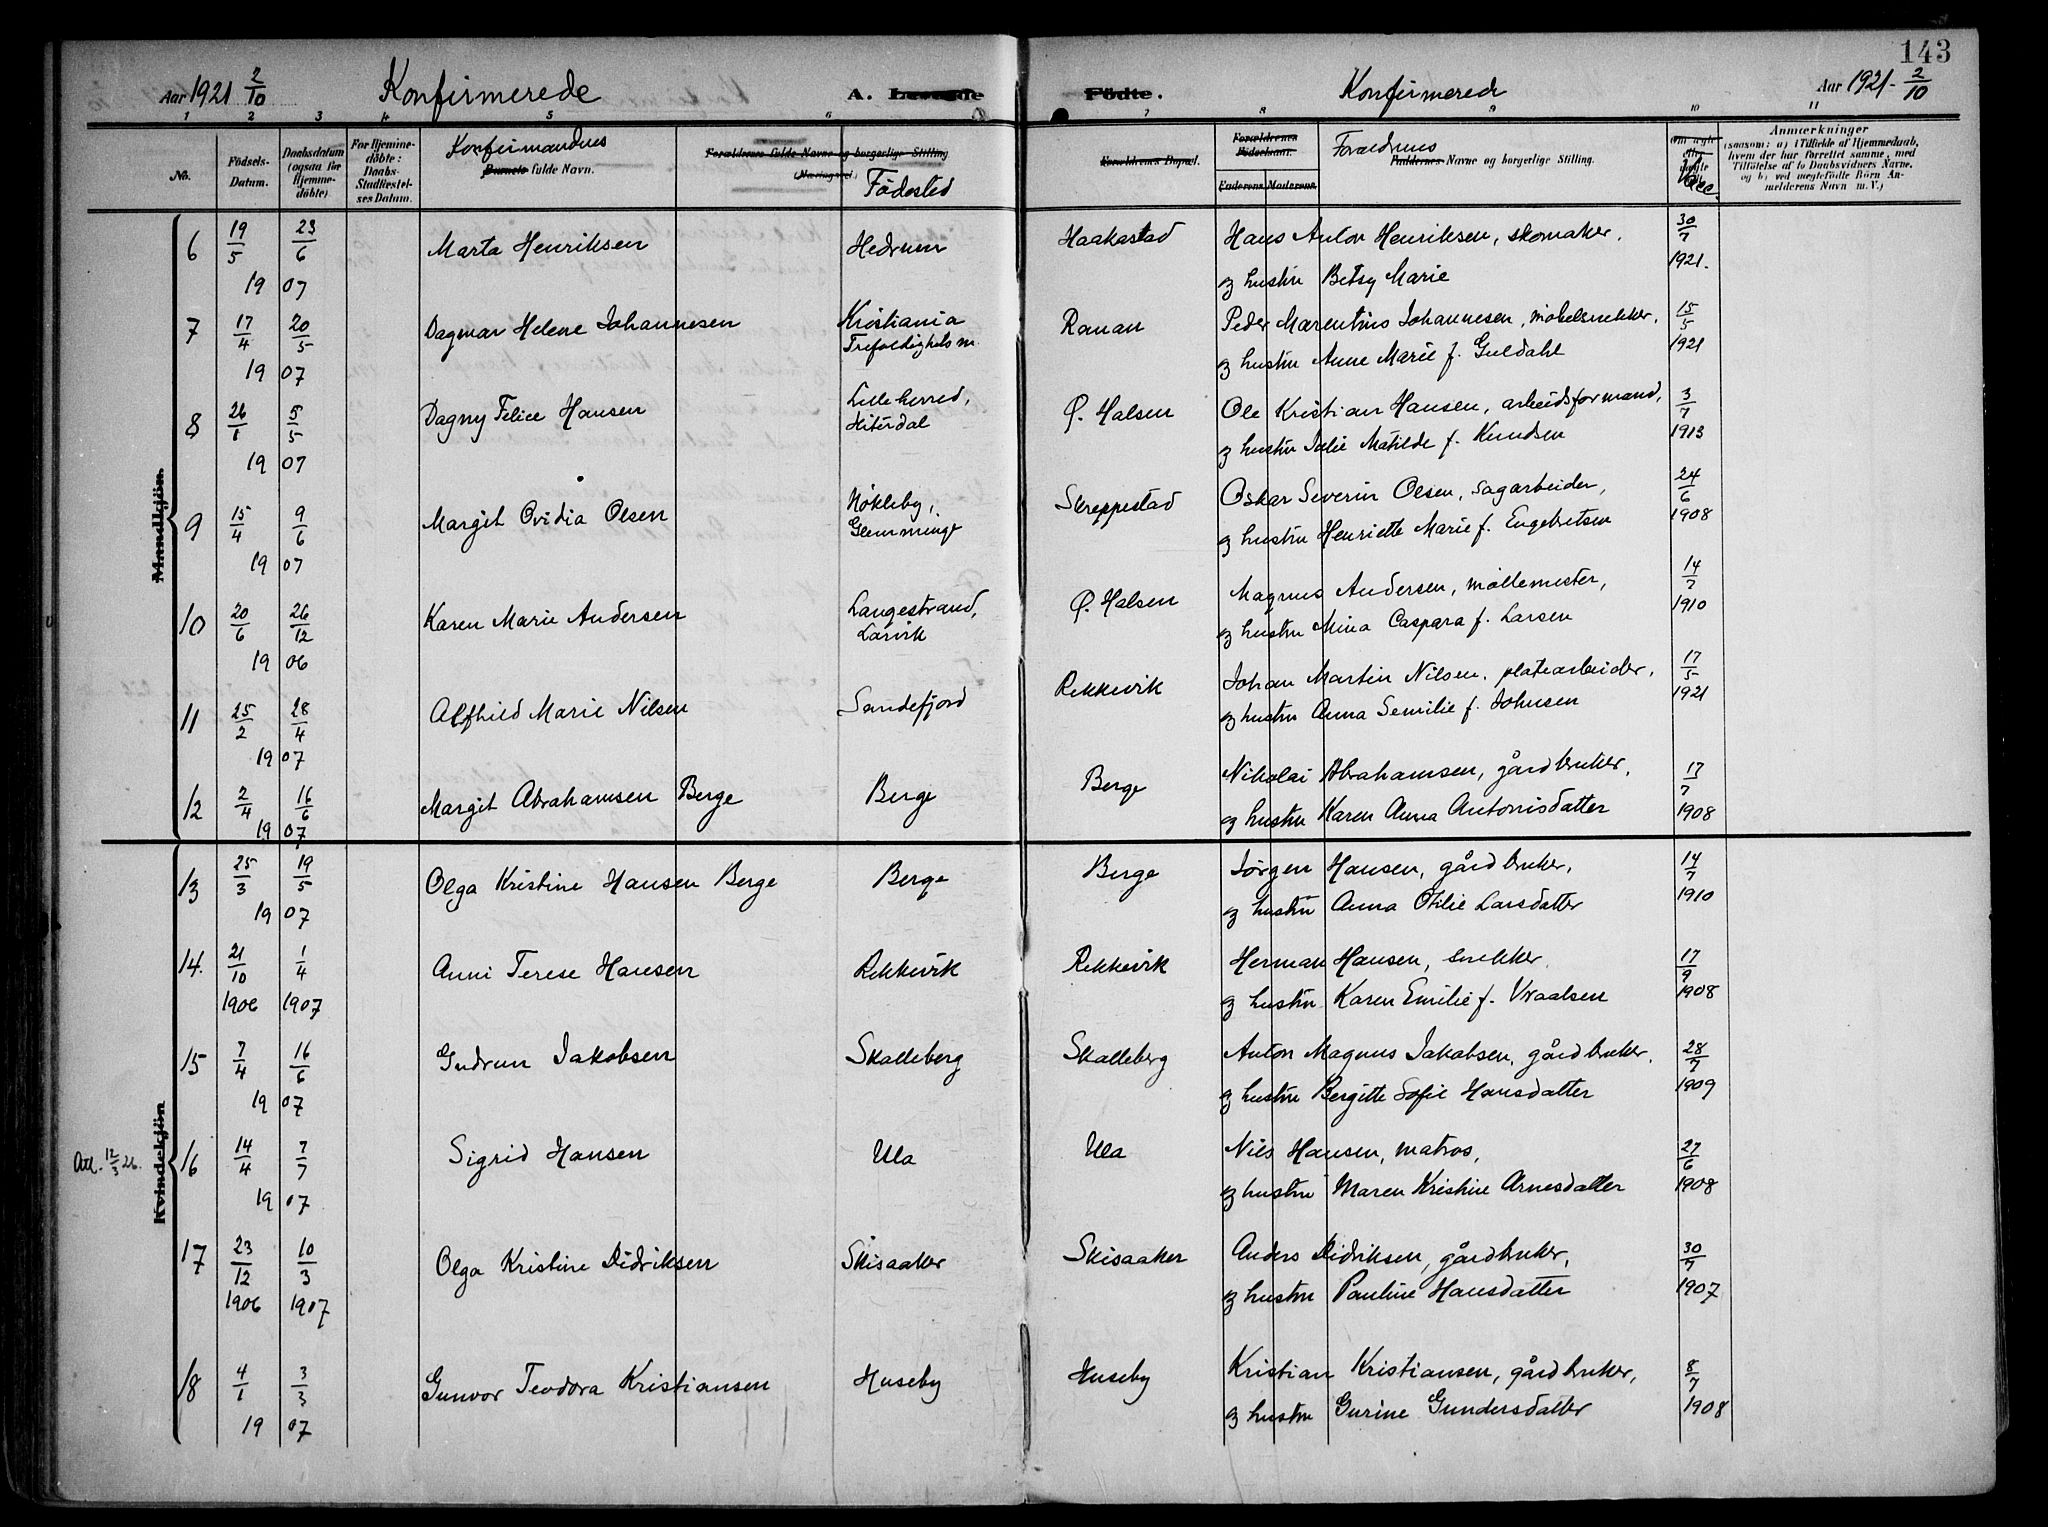 143
Aar 1921 2/10 Konfirmerede A. Levende Födte. Konfirmerede Aar 1921 - 2/10
1 2 3 4 5 6 7 8 9 10 11
No. Födsels-Datum. Daabsdatum (ogsaa for Hjemmedöbte) For Hjemmedöbte: Daabs-Stadfæstelses Datum. Konfirmandens Barnets fulde Navn. Forældrenes fulde Navne og borgerlige Stilling (Næringsvei) Födested Forældrenes Bopæl. Forældrenes Födselsaar. Faderens Moderens Forældrenes Faddernes Navne og borgerlige Stilling. Vacc. Anmærkninger (saasom: a) i Tilfælde af Hjemmedaab, hvem der har forrettet samme, med Tilföielse af to Daabsvidners Navne. og b) ved uegtefödte Börn Anmelderens Navn m. V.)
Mandkjön.
6 19/5 23/6 Marta Henriksen Hedrum Haakastad Hans Anton Henriksen, skomaker, 30/7
19 07 og hustru Betsy Marie 1921.
7 17/4 20/5 Dagmar Helene Johannesen Kristiania Trefoldighets m. Ranan Peder Marentius Johannesen, møbelsnekker, 15/5
19 07 og hustru Anne Marie f. Guldahl 1921
8 26/1 5/5 Dagny Felice Hansen Lilleherred, Hiterdal Ø. Halsen Ole Kristian Hansen, arbeidsformand, 3/7
19 07 og hustru Julie Matilde f. Knudsen 1913
9 15/4 9/6 Margit Ovidia Olsen Nøkleby, Glemminge Skreppestad Oskar Severin Olsen, sagarbeider, 24/6
19 07 og hustru Henriette Marie f. Engebretsen 1908
10 20/6 26/12 Karen Marie Andersen Langestrand, Larvik Ø. Halsen Magnus Andersen, møllemester, 14/7
19 06 og hustru Mina Caspara f. Larsen 1910
11 25/2 28/4 Alfhild Marie Nilsen Sandefjord Rekkevik Johan Martin Nilsen, platearbeider, 17/5
19 07 og hustru Anna Semilie f. Johnsen 1921
12 2/4 16/6 Margit Abrahamsen Berge Berge Berge Nikolai Abrahamsen, gårdbruker, 17/7
19 07 og hustru Karen Anna Antonisdatter 1908
Kvindekjön
13 25/3 19/5 Olga Kristine Hansen Berge Berge Berge Jørgen Hansen, gårdbruker, 14/7
19 07 og hustru Anna Otilie Larsdatter 1910
14. 21/10 1/4 Anni Terese Hansen Rekkevik Rekkevik Herman Hansen, snekker, 17/9
1906 1907 og hustru Karen Emilie f. Vraalsen 1908
15 7/4 16/6 Gudrun Jakobsen Skalleberg Skalleberg Anton Magnus Jakobsen, gårdbruker, 28/7
19 07 og hustru Bergitte Sofie Hansdatter 1909
Att. 12/3 26. 16 14/4 7/7 Sigrid Hansen Ula Ula Nils Hansen, matros, 27/6
19 07 og hustru Maren Kristine Arnesdatter 1908
17 23/12 10/3 Olga Kristine Didriksen Skisaaker Skisaaker Anders Didriksen, gårdbruker, 30/7
1906 1907 og hustru Pauline Hansdatter 1907
18 4/1 3/3 Gunvor Teodora Kristiansen Huseby Huseby Kristian Kristiansen, gårdbruker, 8/7
19 07 og hustru Gurine Gundersdatter 1908